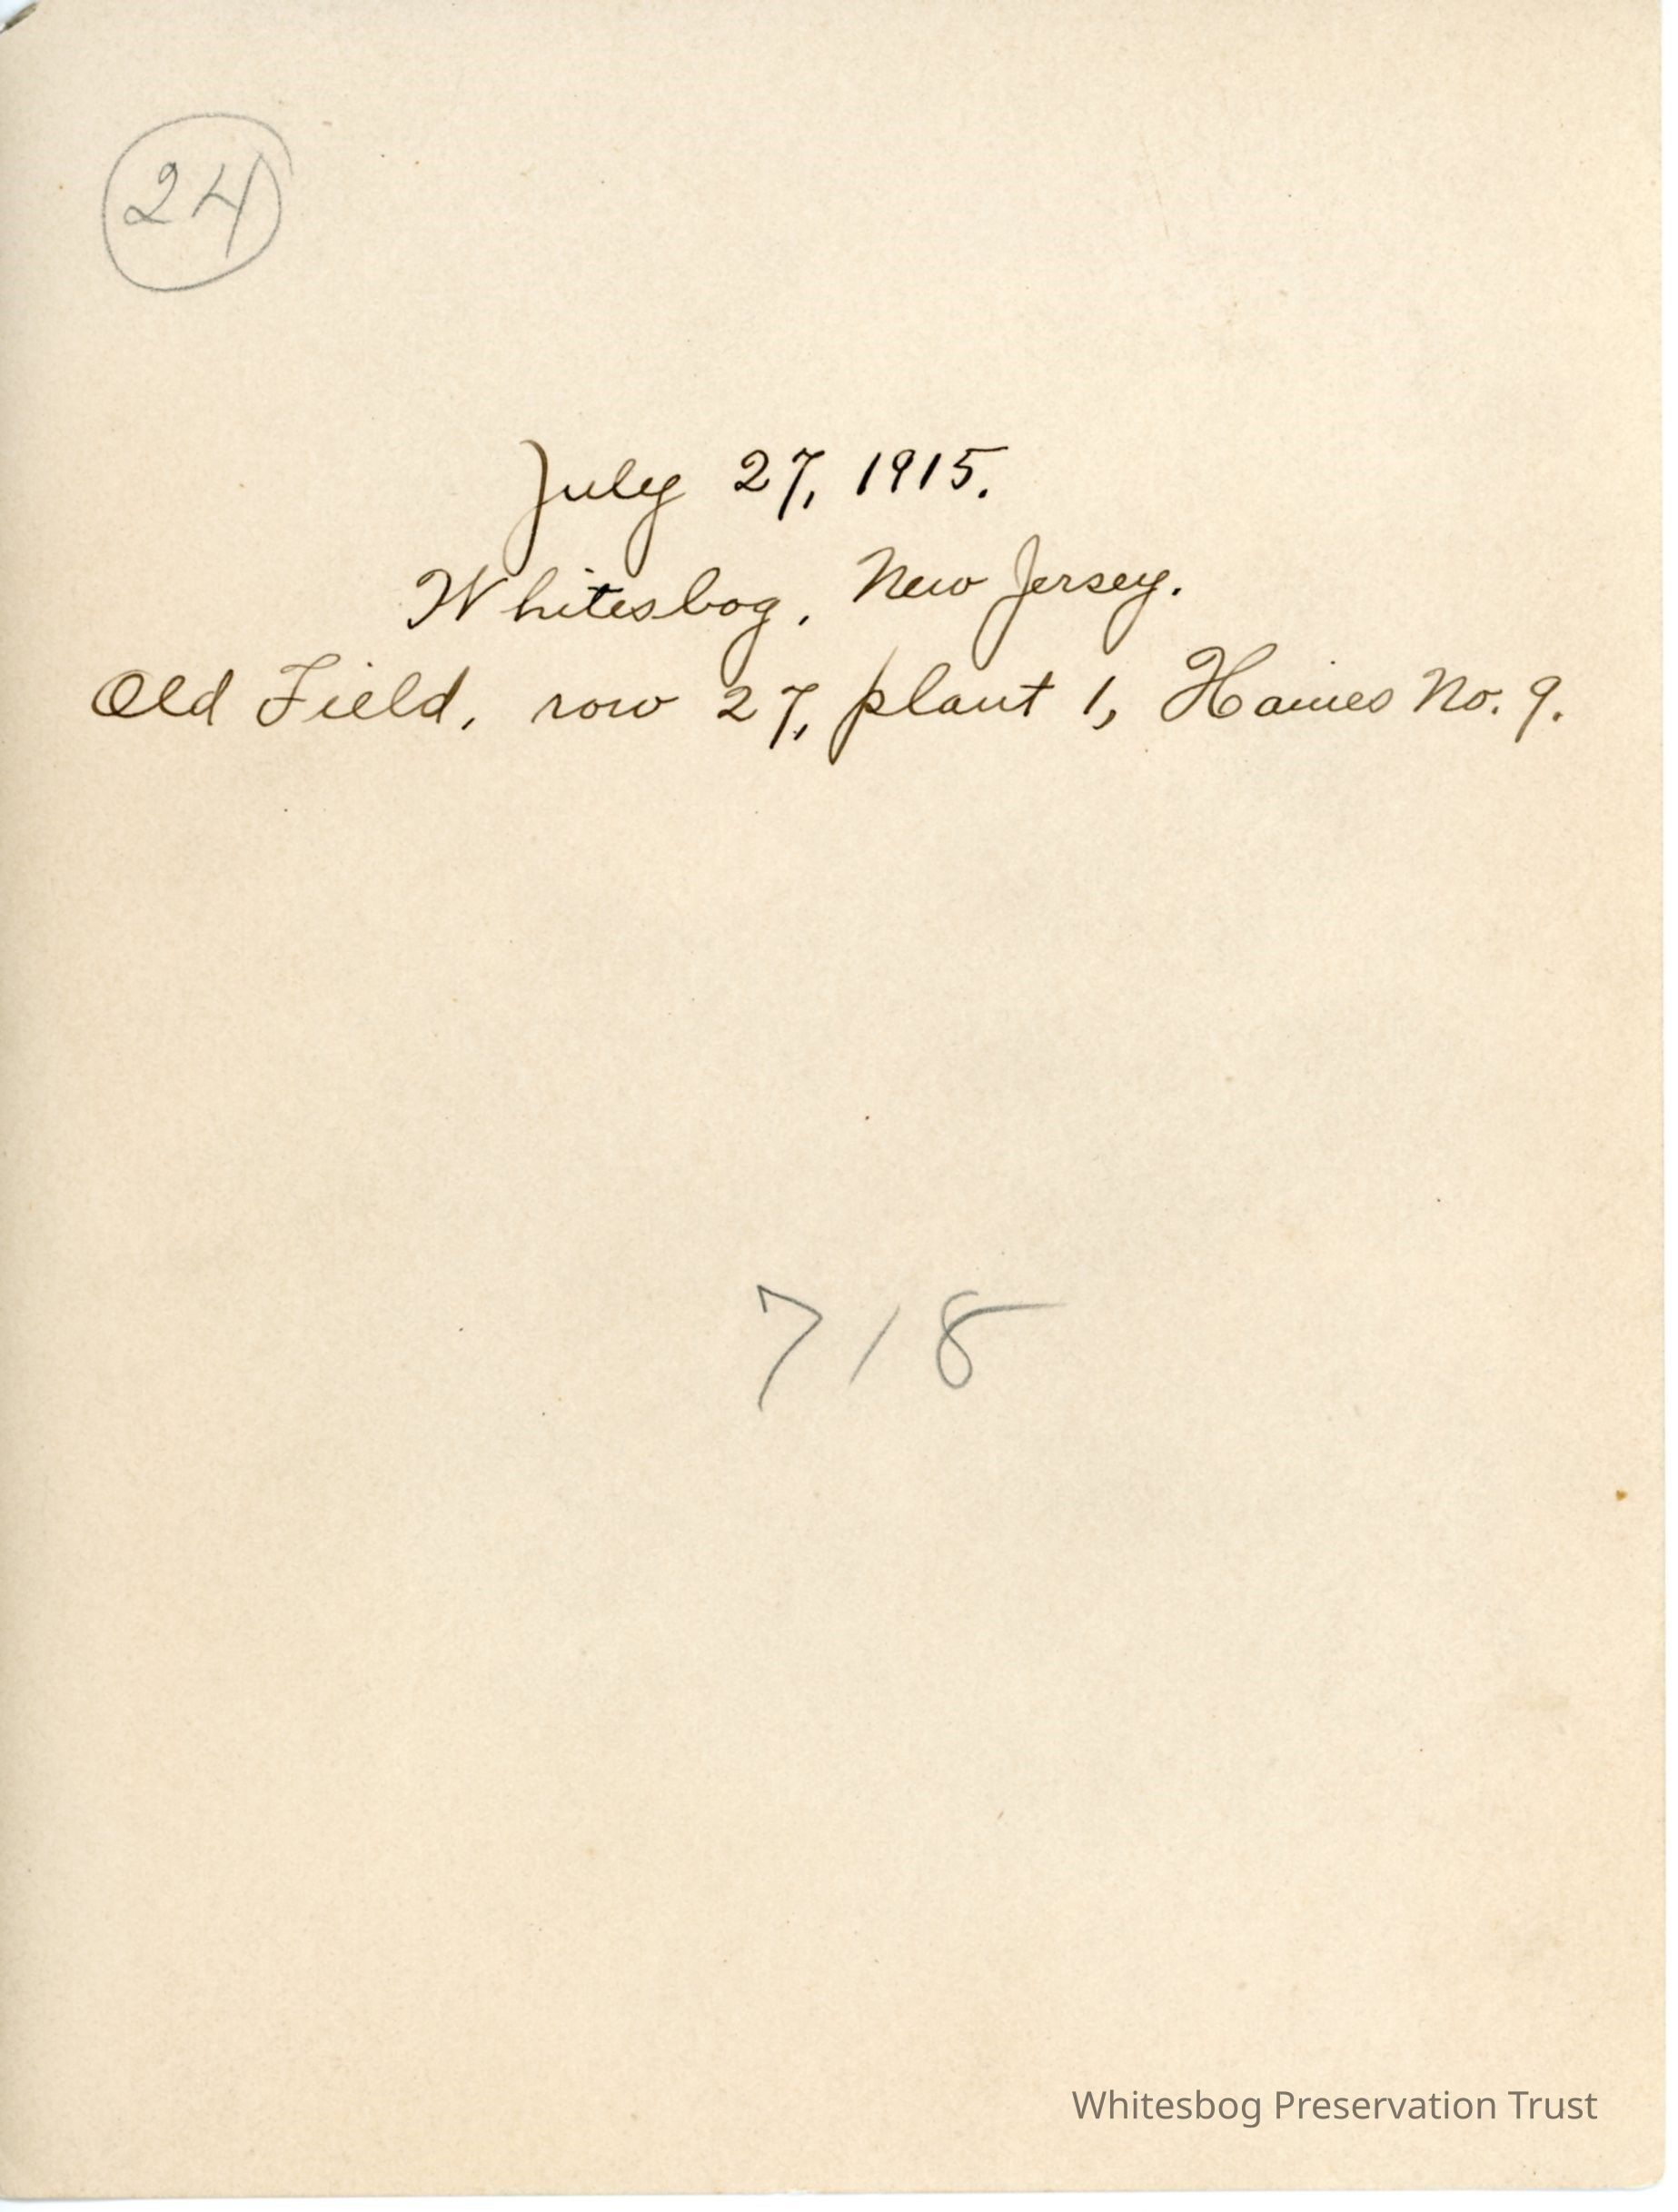 24
July 27, 1915.
Whitesbog, New Jersey.
Old Field, row 27, plant 1, Haines No. 9.
718
Whitesbog Preservation Trust